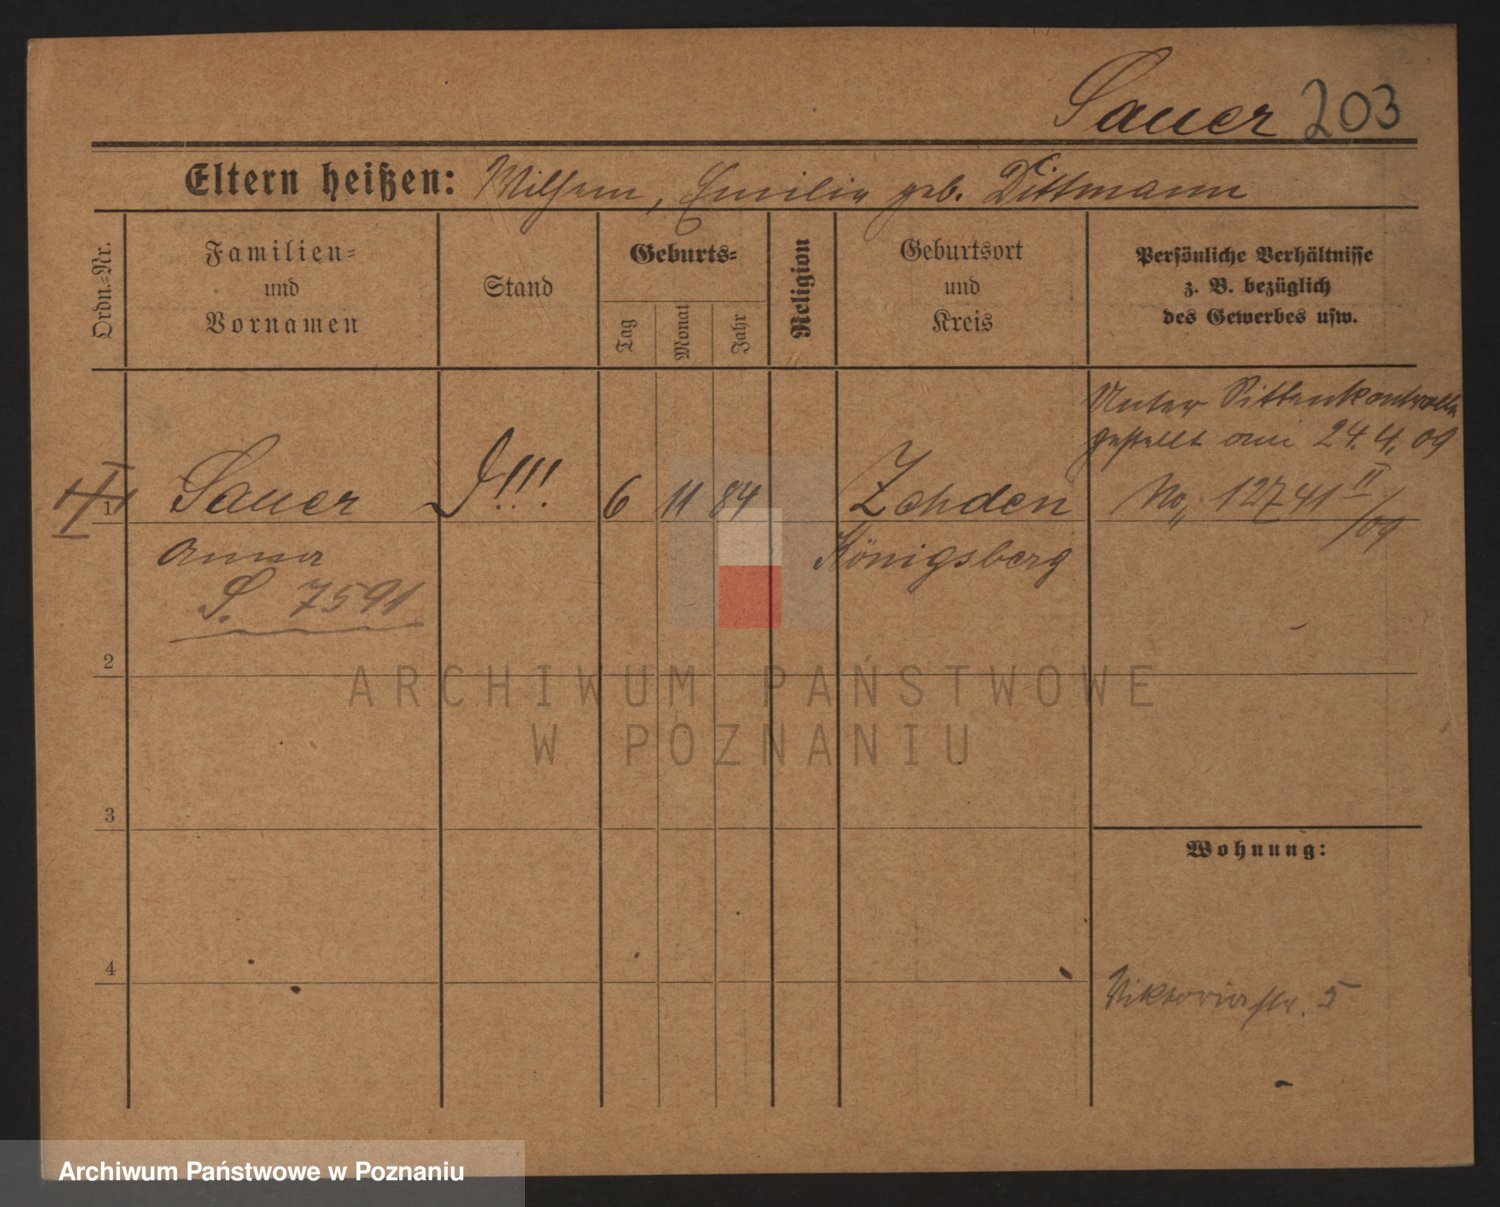 Sauer 203
Eltern heißen: Wilhelm, Emilie geb. Dittmann
Ordn.-Nr.
Familien-
und
Vornamen
Stand
Geburts-
Tag
Monat
Jahr
Religion
Geburtsort
und
Kreis
Persönliche Verhältnisse
z. B. bezüglich
des Gewerbes usw.
Unter Sittenkontrolle
gestellt am 24.4.09
No. 12741 II/09
1
Sauer
!!!
6 11 84
Zehden
Anna
Königsberg
S. 7591
2
ARCHIWUM PAŃSTWOWE
W POZNANIU
3
Wohnung:
4
Viktoriastr. 5
Archiwum Państwowe w Poznaniu